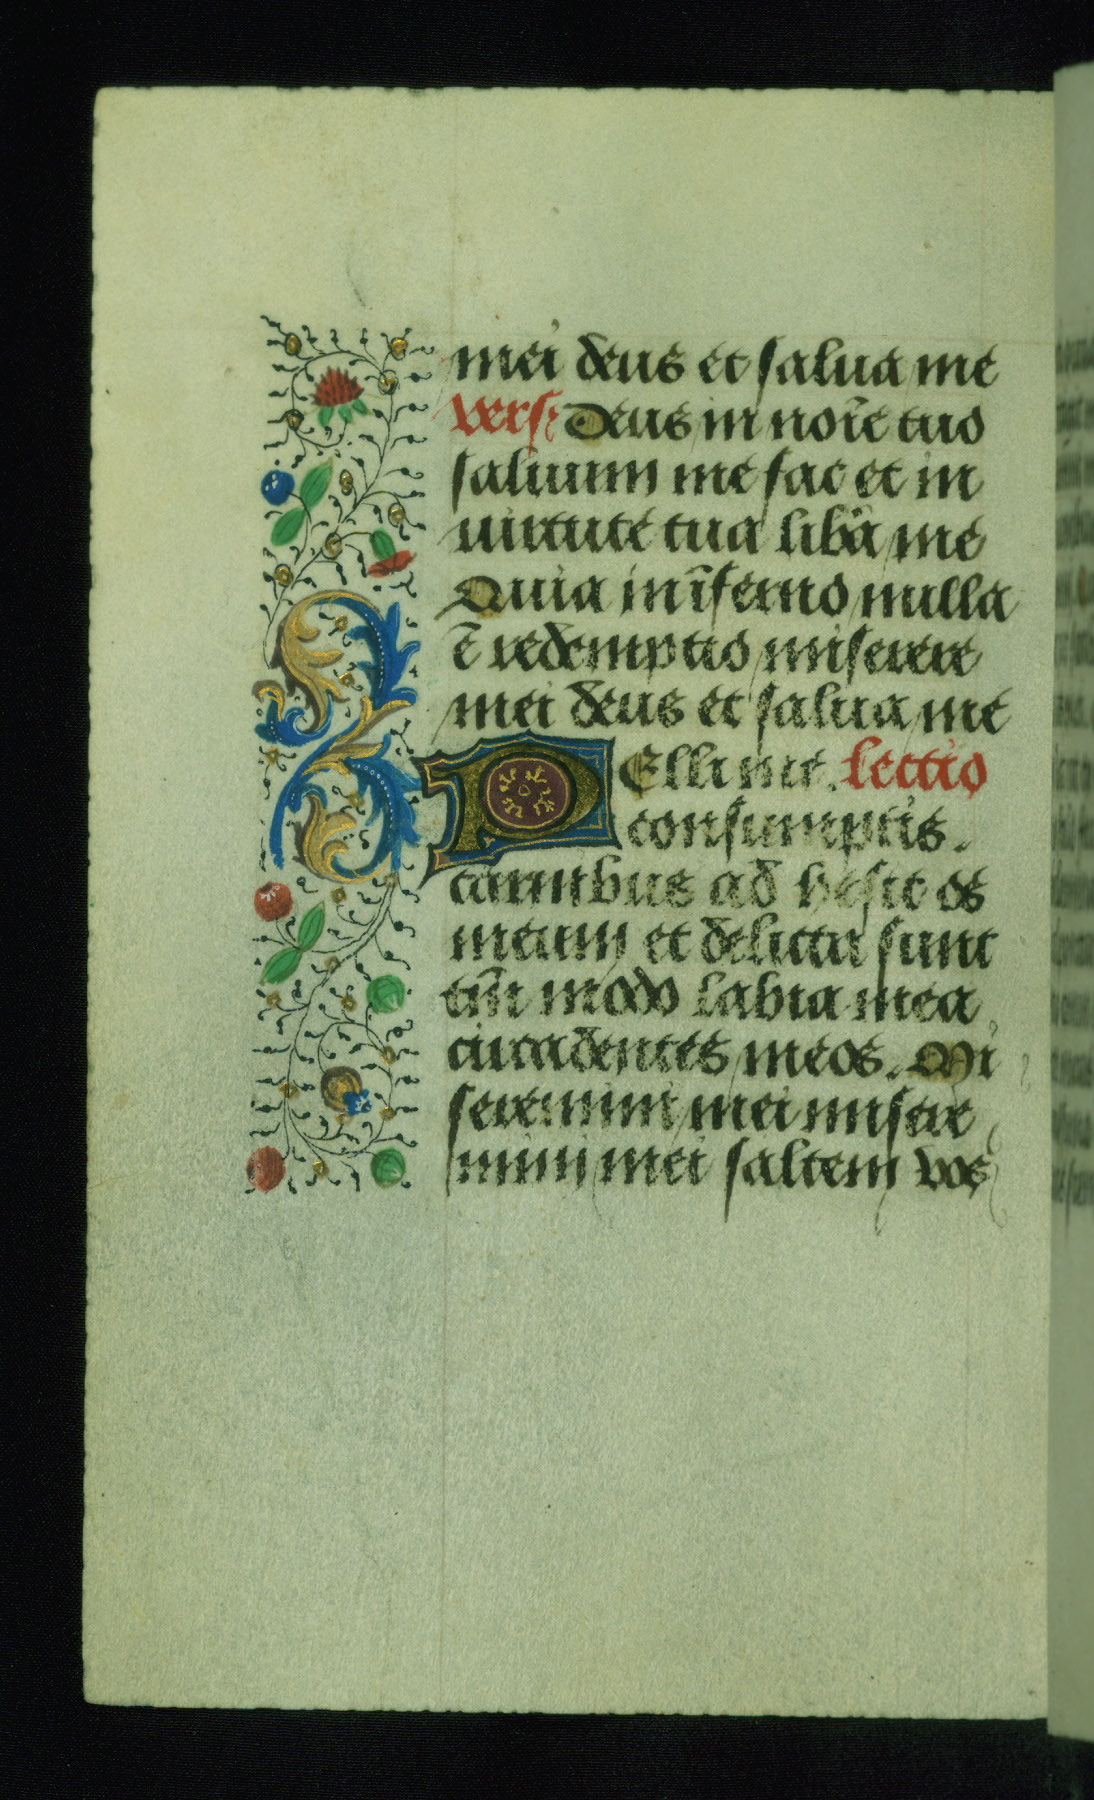 mei deus et salua me
vers̃ Deus in noĩe tuo
saluum me fac et in
uirtute tua libãa me
Quia in ĩferno nulla
ẽ redemptio miserere
mei deus et salua me
PElli me. lectio
consumptis.
carnibus ad hesit os
meum et delicta sunt
tm̃ modo labia mea
circa dentes meos. Mi
seremini mei misere
mini mei saltem vos